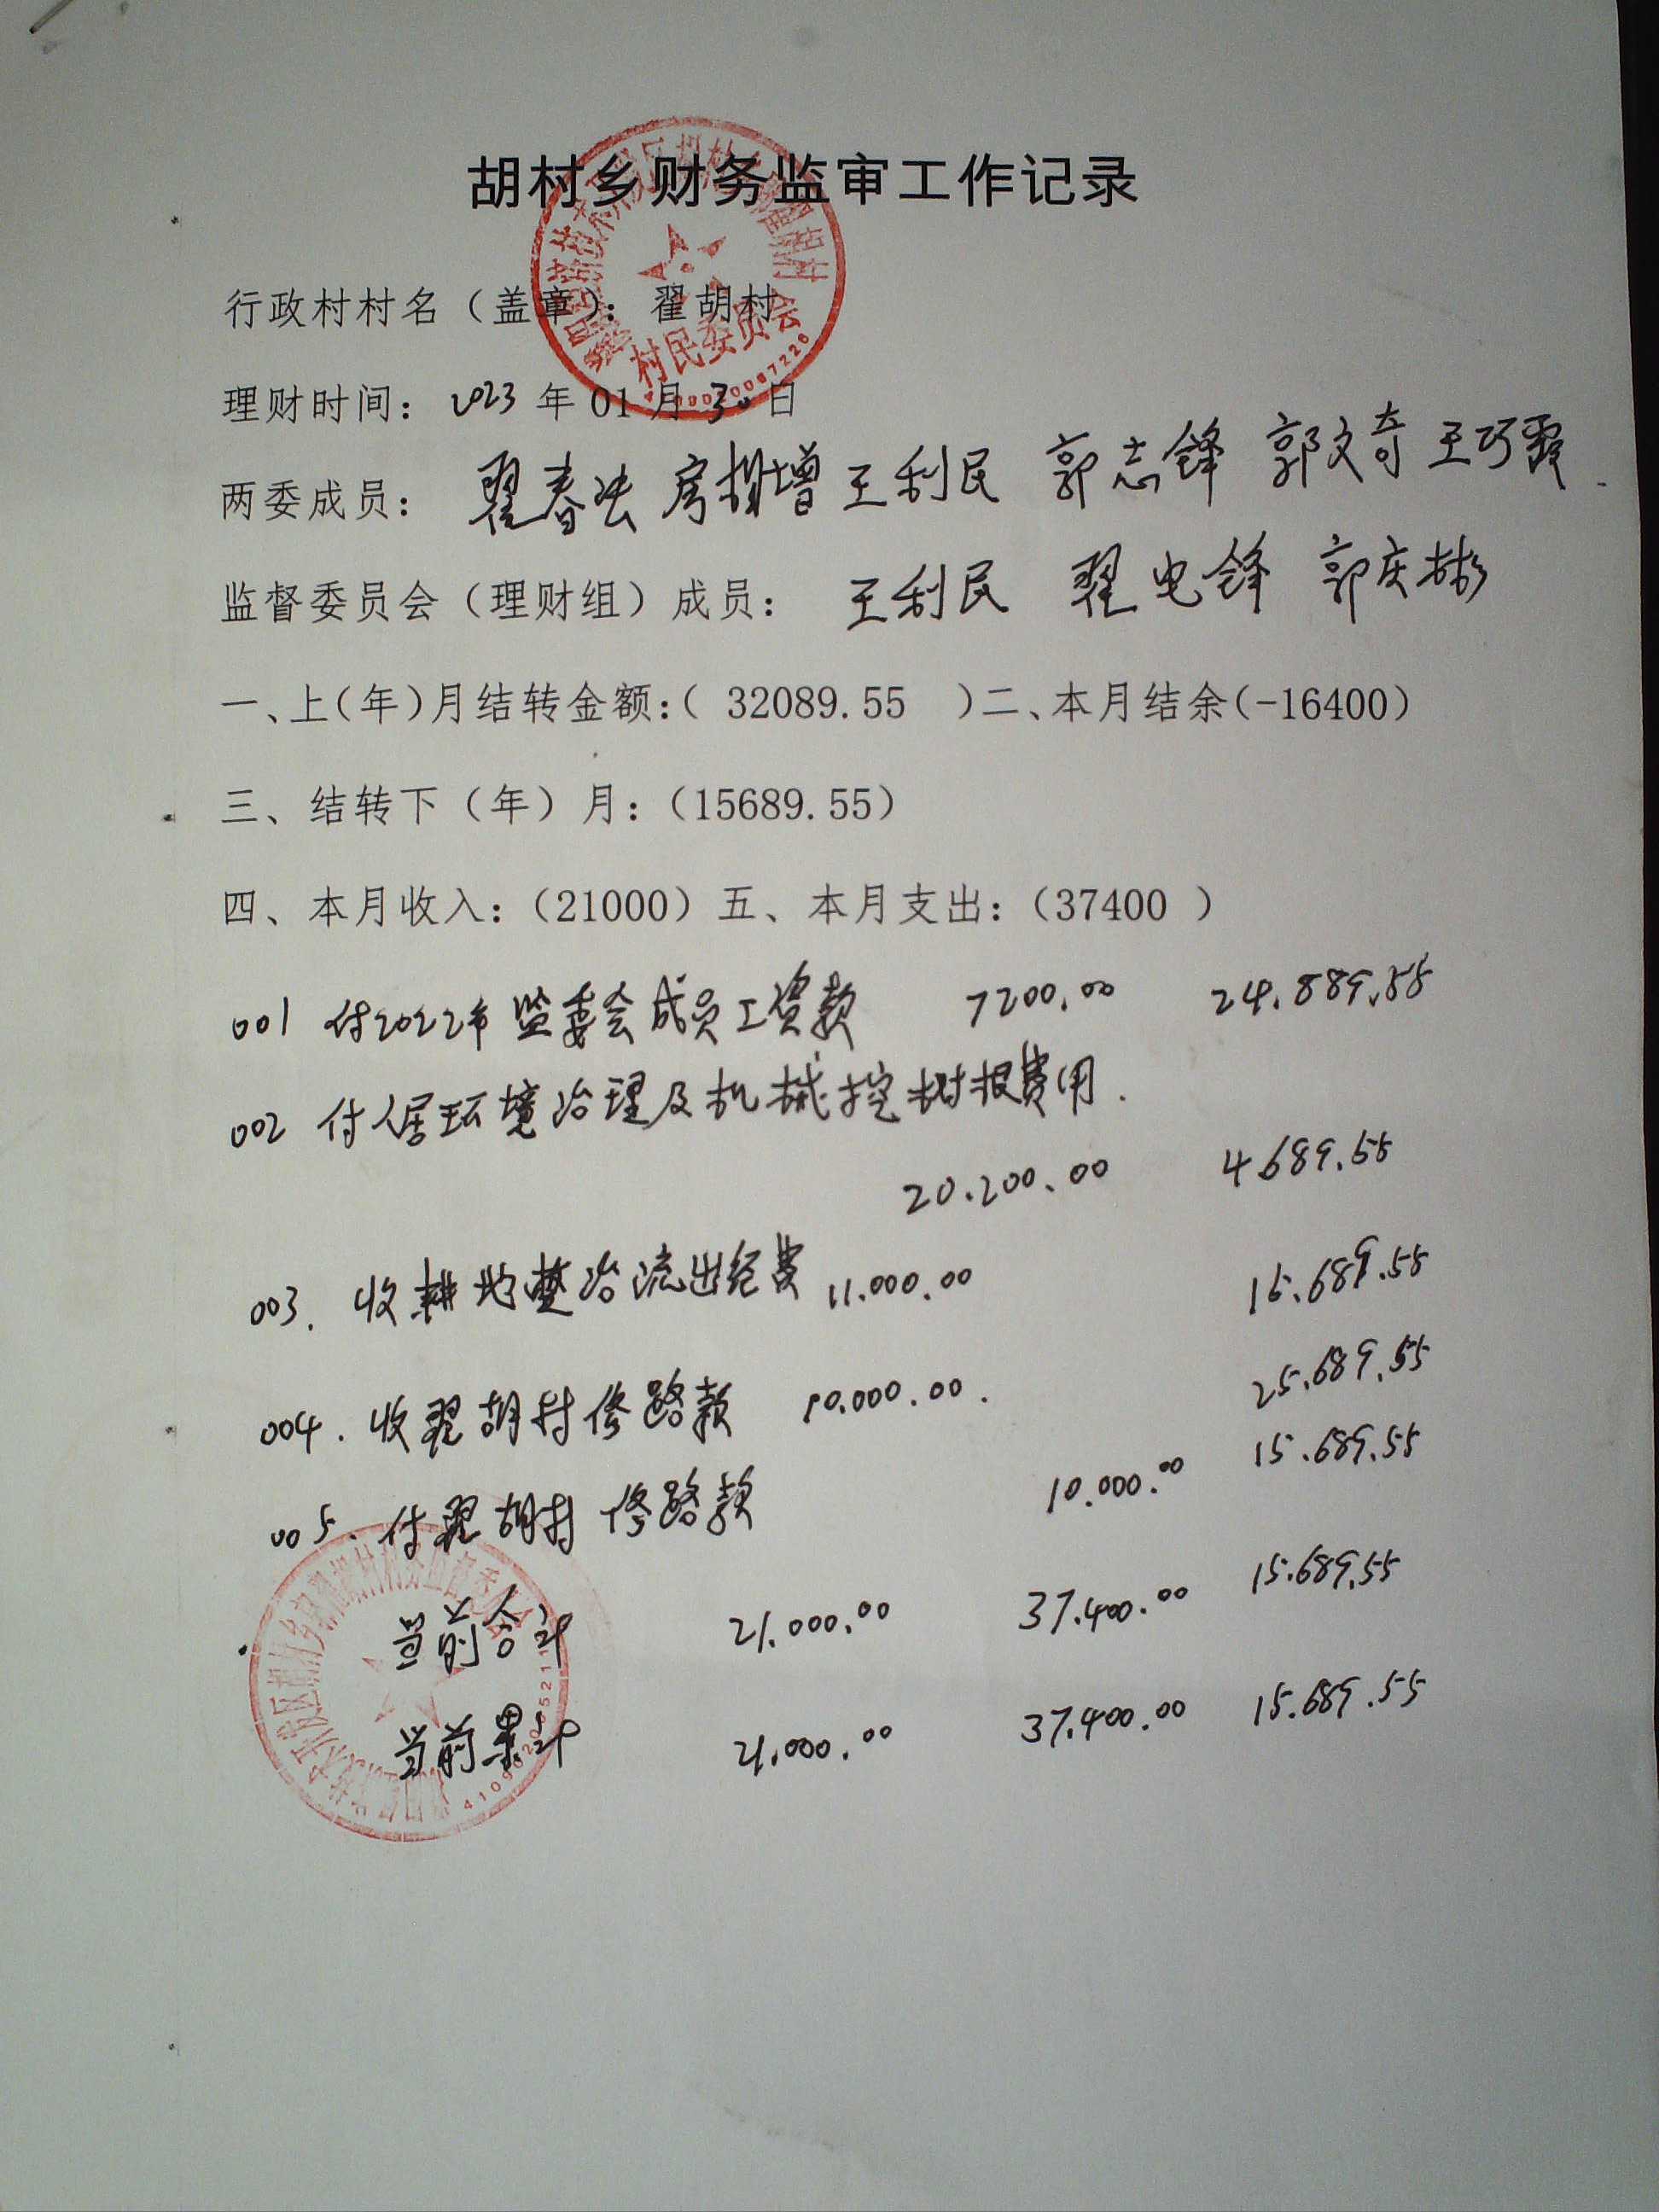 胡村乡财务监审工作记录
行政村村名（盖章）：翟胡村
村民委员会
理财时间：2023年01月30日
两委成员：翟春法 房拥增 王利民 郭志锋 郭文奇 王巧霞
监督委员会（理财组）成员：王利民 翟电锋 郭庆彬
一、上(年)月结转金额:( 32089.55 )二、本月结余(-16400)
三、结转下（年）月：（15689.55）
四、本月收入：（21000）五、本月支出：（37400 ）
001 付2022年监委会成员工资款 7200.00 24.889.55
002 付人居环境治理及机械挖树根费用.
20.200.00 4689.55
003. 收耕地整治流出经费 11.000.00 15.689.55
004. 收翟胡村修路款 10.000.00. 25.689.55
005. 付翟胡村修路款 10.000.00 15.689.55
当前合计 21.000.00 37.400.00 15.689.55
当前累计 21.000.00 37.400.00 15.689.55